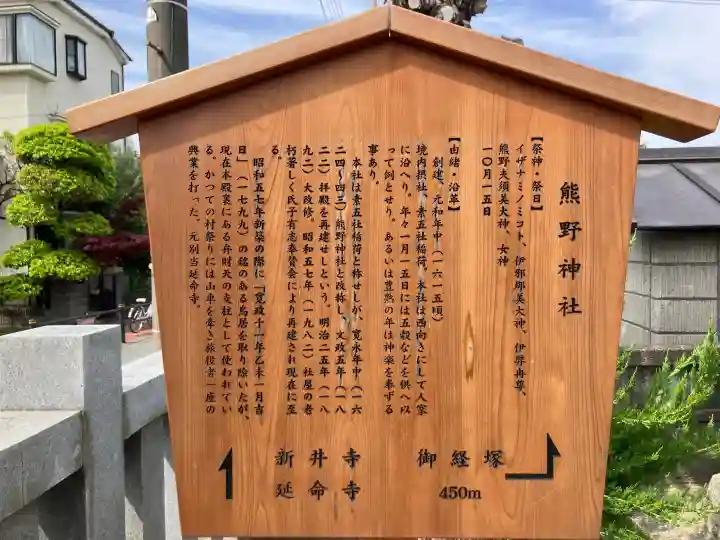 熊野神社
【祭神・祭日】
イザナミノミコト、伊邪那美大神、伊弉冉尊、
熊野夫須美大神、女神
一〇月一五日
【由緒・沿革】
創建、元和年中（一六一五頃）
境内摂社、素五社稲荷、本社は西向きにして人家
に沿へり。年々一月一五日には五穀などを供へ以
って例とせり。あるいは豊熟の年は神楽を奉ずる
事あり。
本社は素五社稲荷と称せしが、寛永年中（一六
二四～四三）熊野神社と改称し、文政五年（一八
二二）拝殿を再建せしという。明治二五年（一八
九二）大改修。昭和五七年（一九八二）社屋の老
朽著しく氏子有志奉賛会により再建され現在に至
る。
昭和五七年新築の際に「寛政十一年乙未一月吉
日」（一七九九）の銘のある鳥居を取り除いたが、
現在本殿裏にある弁財天の支柱として使われてい
る。かつての村祭りには山車を牽き旅役者一座の
興業を打った。元別当延命寺。
御経塚
450m
新井寺
延命寺